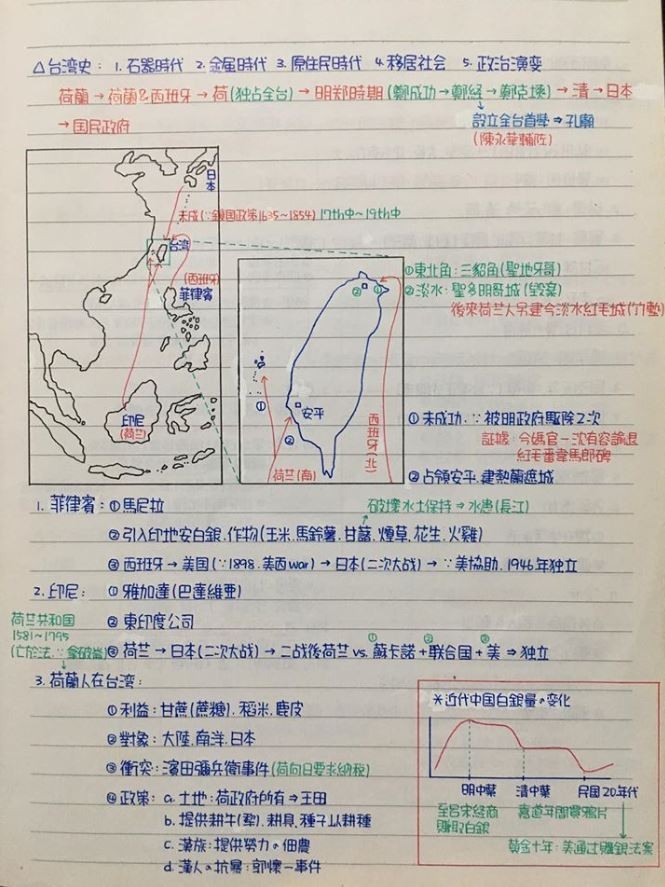 △台湾史: 1. 石器時代 2. 金屬時代 3. 原住民時代 4. 移居社会 5. 政治演变
荷蘭→荷蘭&西班牙→荷(独占全台)→明郑時期(鄭成功→鄭経→鄭克塽)→清→日本
→国民政府
設立全台首學⇒孔廟
(陳永華輔佐)
日本
未成(∵鎖国政策1635~1854) 17th中~19th中
台湾
(西班牙)
菲律賓
印尼
(荷兰)
①東北角:三貂角(聖地牙哥)
②淡水:聖多明哥城(毀棄)
後來荷兰人另建今淡水紅毛城(竹塹)
② ①
安平
①
②
荷兰(南)
西班牙(北)
①未成功.∵被明政府駆除2次
証據:今媽宮一沈有容諭退
紅毛番韋馬郎碑
②占領安平.建熱蘭遮城
1. 菲律賓:①馬尼拉
破壊水土保持⇒水患(長江)
②引入印地安白銀.作物(玉米.馬鈴薯.甘藷.煙草.花生.火雞)
③西班牙→美国(∵1898.美西war)→日本(二次大战)→∵美協助.1946年独立
2. 印尼:①雅加達(巴達維亜)
②東印度公司
荷兰共和国
1581~1795
(亡於法.∵拿破崙)
① ② ③
③荷兰→日本(二次大战)→二战後荷兰vs.蘇卡諾+联合国+美⇒独立
3. 荷蘭人在台湾:
①利益:甘蔗(蔗糖).稻米.鹿皮
②對象:大陸.南洋.日本
③衝突:濱田彌兵衛事件(荷向日要求納稅)
④政策:a.土地:荷政府所有⇒王田
b.提供耕牛(犁).耕具.種子以耕種
c.漢族:提供勞力の佃農
d.漢人の抗暴:郭懷一事件
※近代中国白銀量の变化
明中葉 清中葉 民国20年代
至呂宋経商
賺取白銀
嘉道年間賣鴉片
黄金十年:美通过購銀法案